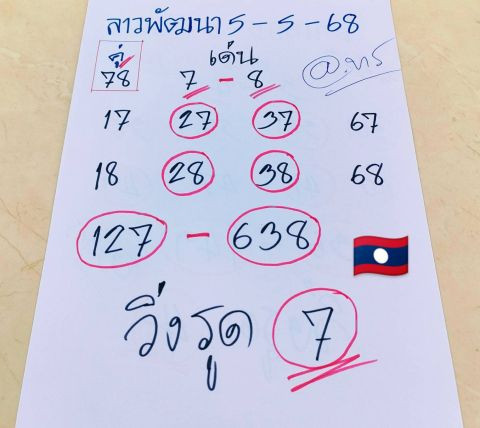 ลาวพัฒนา 5 - 5 - 68
คู่ เด่น
78 7 - 8
17 27 37 67
18 28 38 68
127 - 638
วิ่งรูด 7